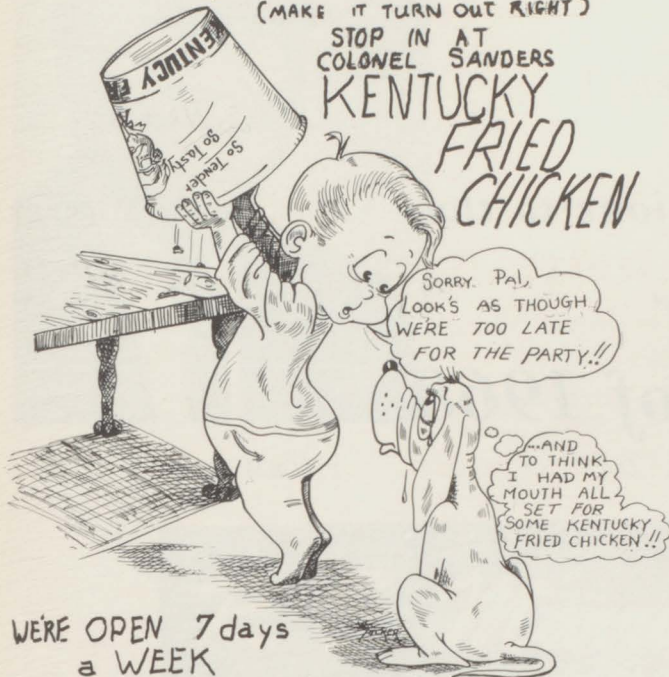 (MAKE IT TURN OUT RIGHT)
STOP IN AT
COLONEL SANDERS
KENTUCKY
FRIED
CHICKEN
KENTUCY FR
So Tender
So Tasty
SORRY PAL,
LOOK'S AS THOUGH
WE'RE TOO LATE
FOR THE PARTY!!
...AND
TO THINK
I HAD MY
MOUTH ALL
SET FOR
SOME KENTUCKY
FRIED CHICKEN!!
WE'RE OPEN 7 days
a WEEK